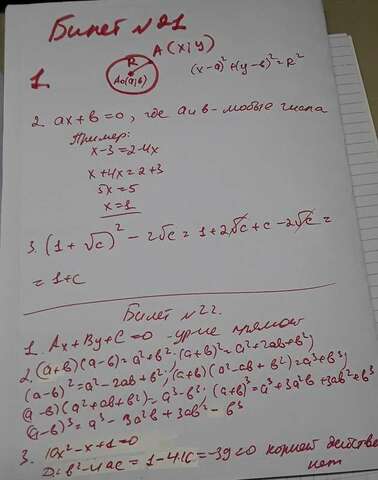 Билет №21
1.
R
A(x;y)
A₀(a;b)
(x-a)²+(y-b)²=R²
2. ax+b=0, где a и b - любые числа
Пример:
x-3=2-4x
x+4x=2+3
5x=5
x=1
3. (1+√c)²-2√c=1+2√c+c-2√c=
=1+c
Билет №22.
1. Ax+By+C=0 -ур-ие прямой
2. (a+b)(a-b)=a²+b²; (a+b)²=a²+2ab+b²;
(a-b)²=a²-2ab+b²; (a+b)(a²-ab+b²)=a³+b³;
(a-b)(a²+ab+b²)=a³-b³; (a+b)³=a³+3a²b+3ab²+b³
(a-b)³=a³-3a²b+3ab²-b³
3. 10x²-x+1=0
D=b²-4ac=1-4·10=-39<0 корней действ
нет